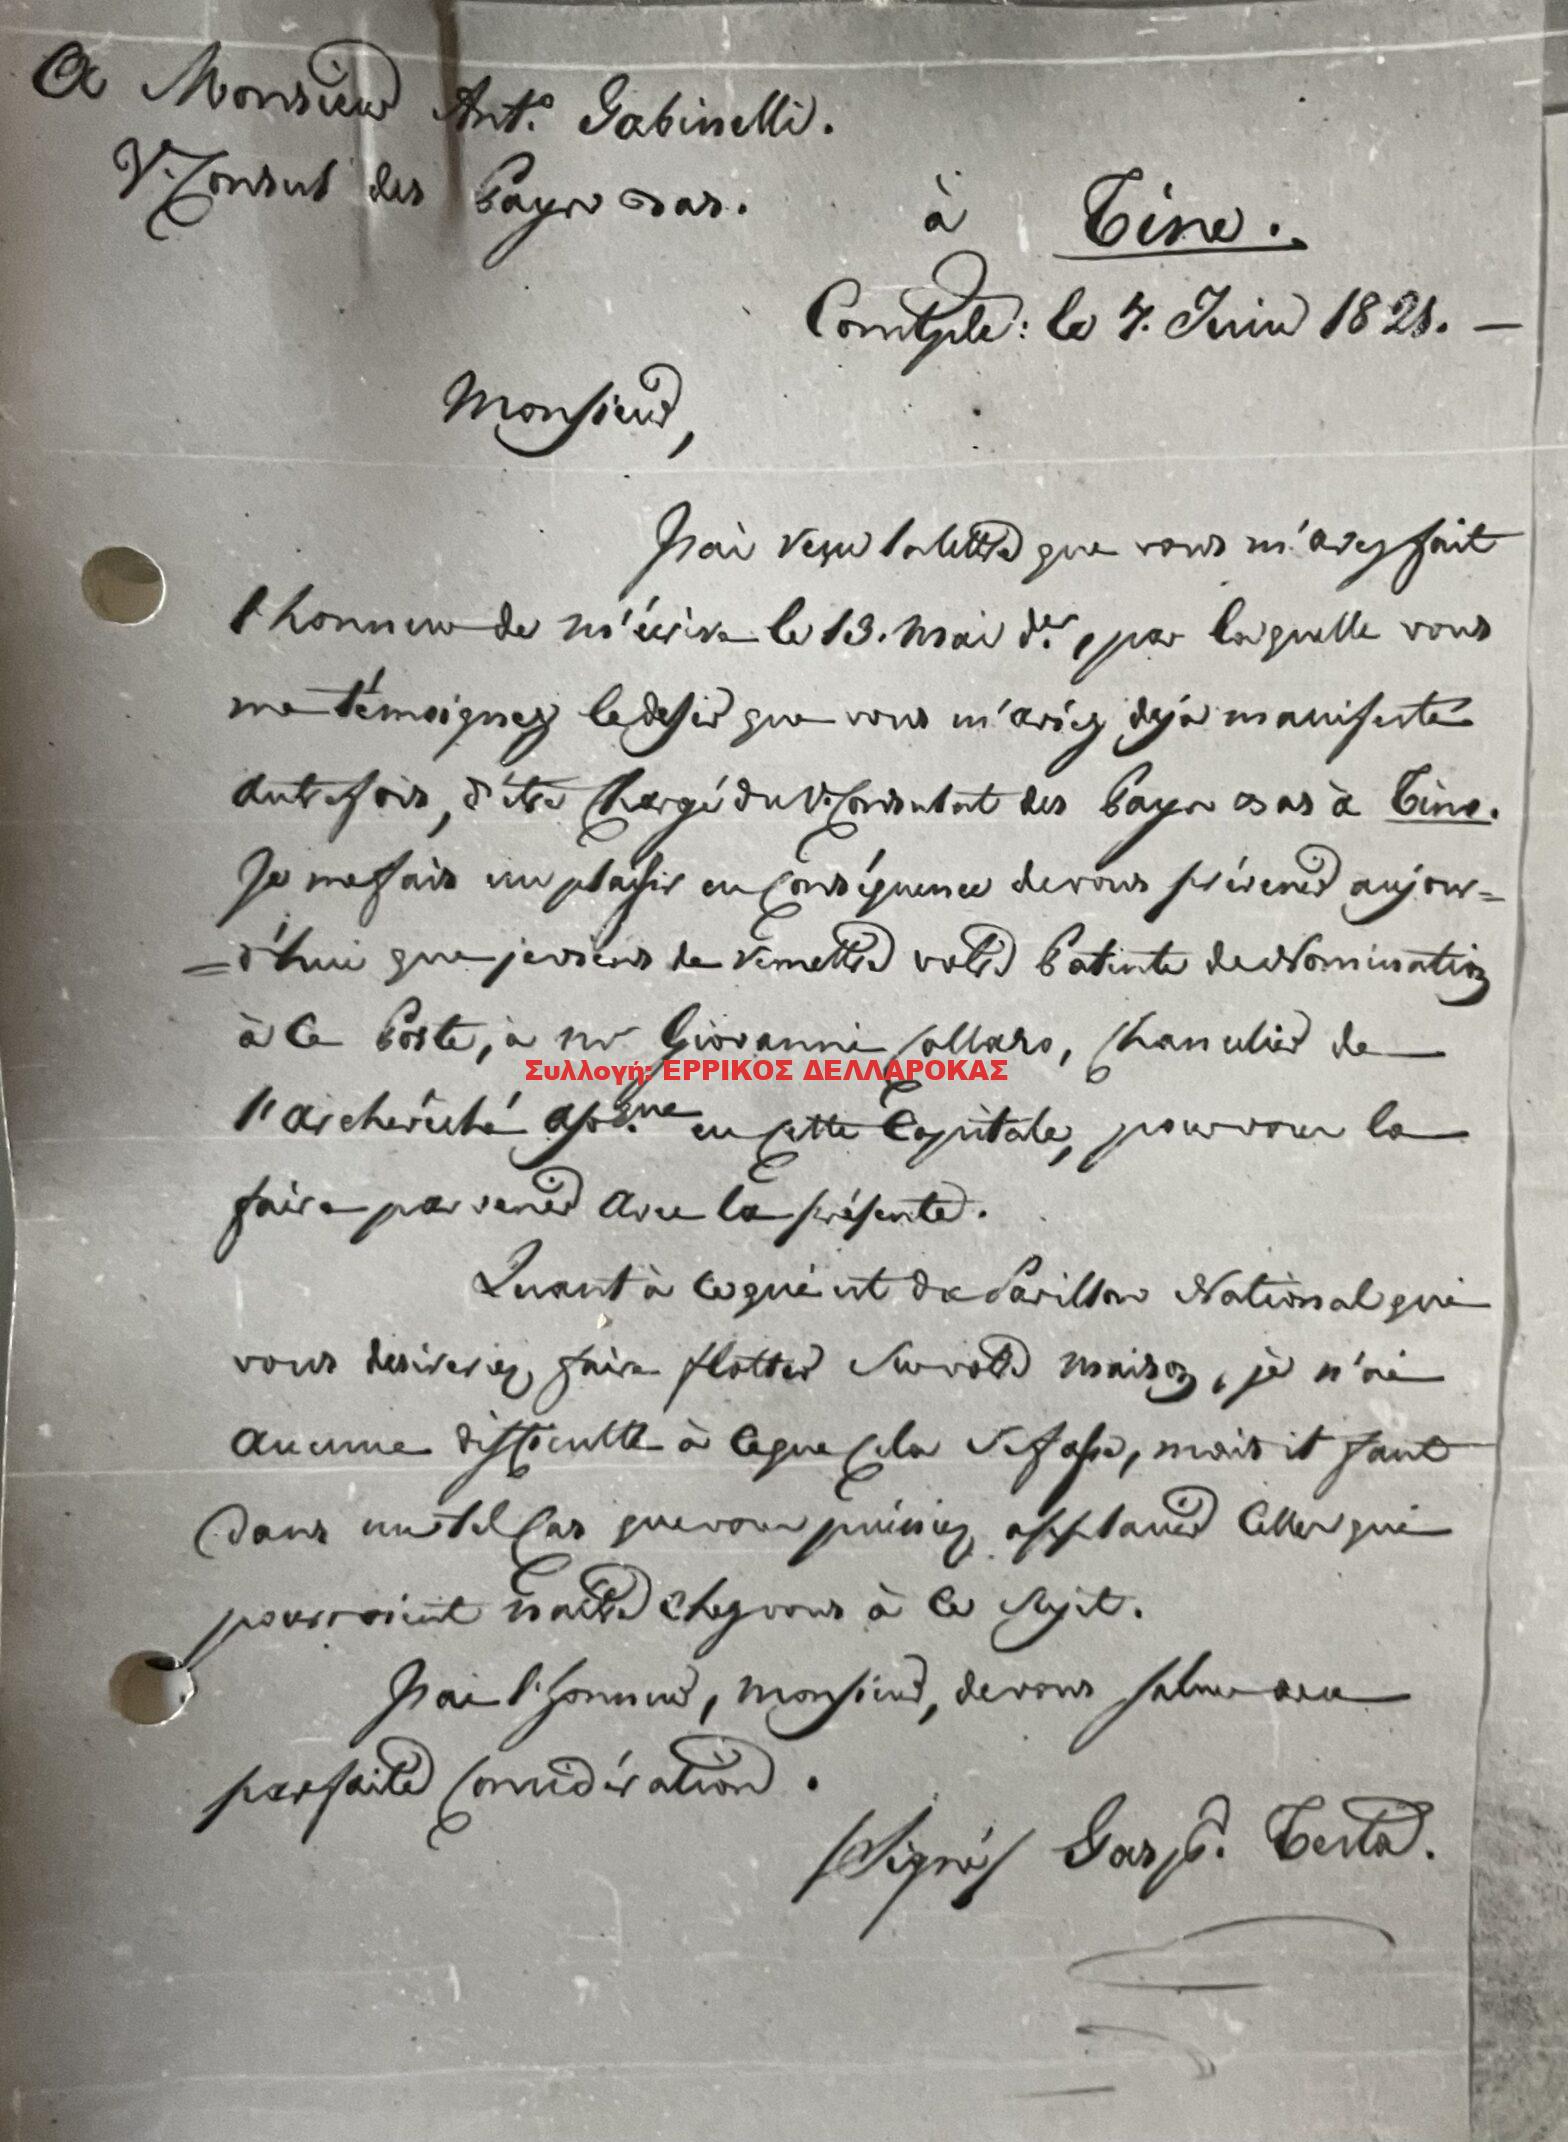 A Monsieur Ant.º Gabinelli.
V. Consul des Pays-bas.
à Tine.
Constple: le 7. Juin 1821. —
Monsieur,
J'ai reçu la lettre que vous m'avez fait
l'honneur de m'écrire le 13. Mai der, par laquelle vous
me témoignez le desir que vous m'aviez deja manifesté
autrefois, d'être Chargé du V. Consulat des Pays-bas à Tine.
Je me fais un plaisir en Conséquence de vous prévenir aujour=
=d'hui que je viens de remettre votre Patente de Nomination
à ce Poste, à mr Giovanni Collaro, Chancelier de
l'archevêché apque en Cette Capitale, pour vous la
faire parvenir avec la présente.
Quant à ce qui est du Pavillon National que
vous desireriez faire flotter sur votre maison, je n'ai
aucune difficulté à ce que Cela se fasse, mais il faut
dans un tel Cas que vous puissiez applanir Celles qui
pourroient naitre chez vous à ce sujet.
J'ai l'honneur, Monsieur, de vous saluer avec
parfaite Considération.
/Signé/ Gasp. Testa.
Συλλογή: ΕΡΡΙΚΟΣ ΔΕΛΛΑΡΟΚΑΣ